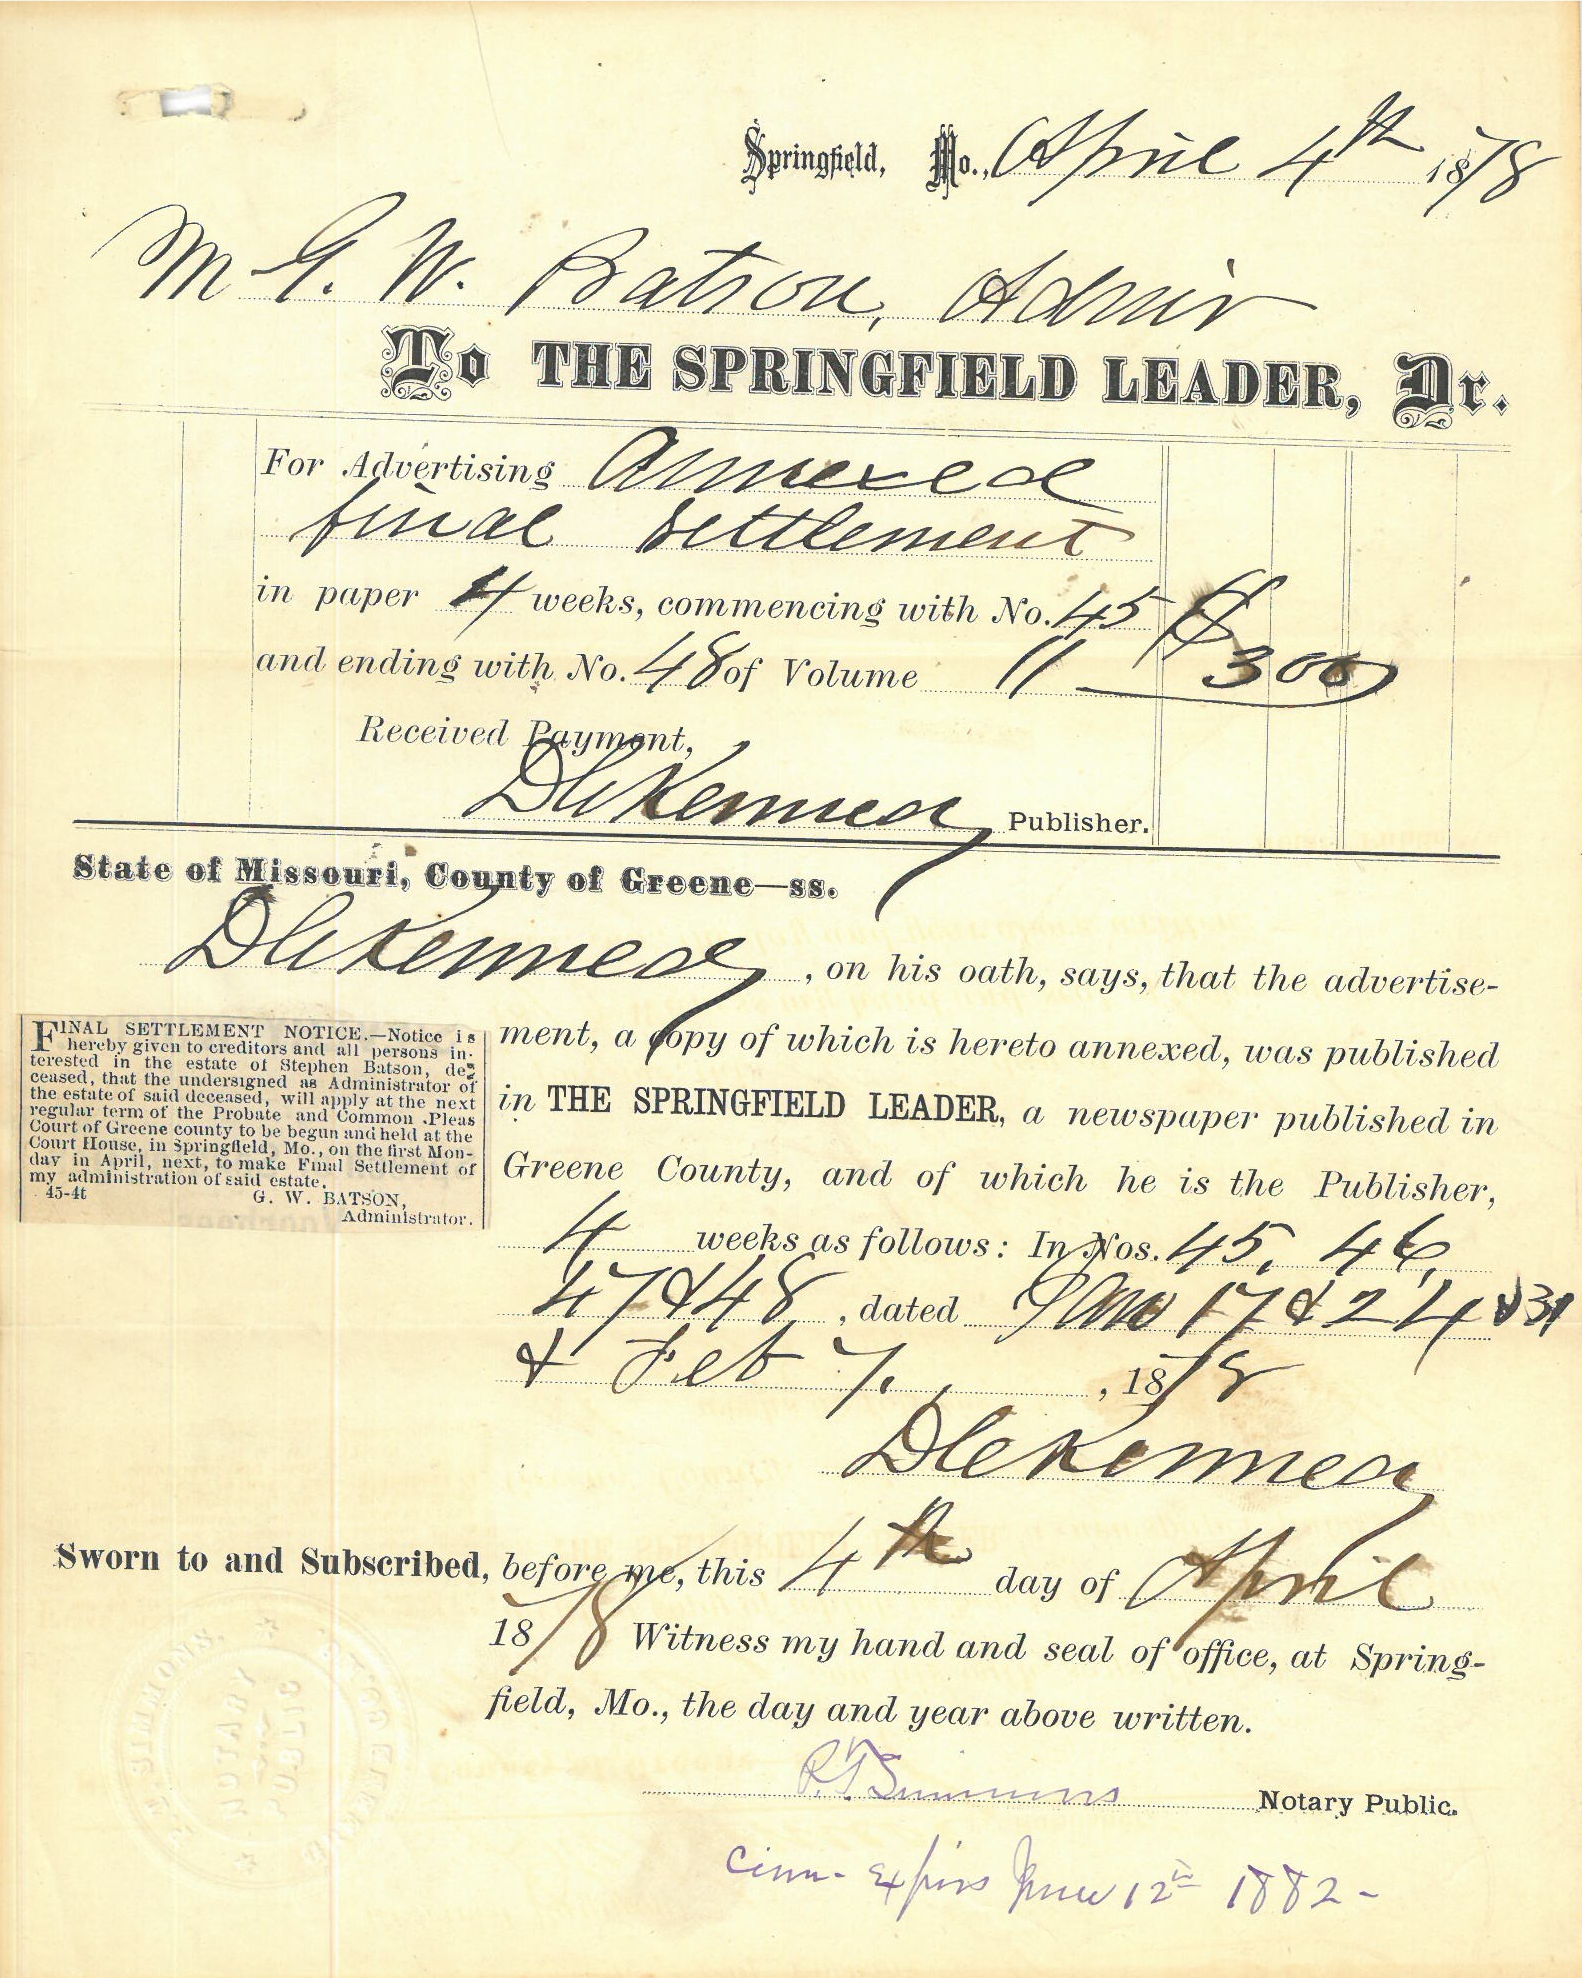 Springfield, Mo., April 4th 1878
M G. W. Batson, Admir
To THE SPRINGFIELD LEADER, Dr.
For Advertising Annexed
final settlement
in paper 4 weeks, commencing with No. 45
and ending with No. 48 of Volume 11 $ 3 00
Received Payment,
D C Kennedy Publisher.
State of Missouri, County of Greene—ss.
D C Kennedy, on his oath, says, that the advertise-
ment, a copy of which is hereto annexed, was published
in THE SPRINGFIELD LEADER, a newspaper published in
Greene County, and of which he is the Publisher,
4 weeks as follows: In Nos. 45, 46,
47 & 48, dated Jany 17 & 24 & 31
& Feb 7. , 1878
D C Kennedy
FINAL SETTLEMENT NOTICE.—Notice is
hereby given to creditors and all persons in-
terested in the estate of Stephen Batson, de-
ceased, that the undersigned as Administrator of
the estate of said deceased, will apply at the next
regular term of the Probate and Common Pleas
Court of Greene county to be begun and held at the
Court House, in Springfield, Mo., on the first Mon-
day in April, next, to make Final Settlement of
my administration of said estate.
45-4t G. W. BATSON,
Administrator.
Sworn to and Subscribed, before me, this 4th day of April
1878 Witness my hand and seal of office, at Spring-
field, Mo., the day and year above written.
SIMMONS
NOTARY
PUBLIC
P. T. Simmons Notary Public.
Com- expires June 12th 1882-